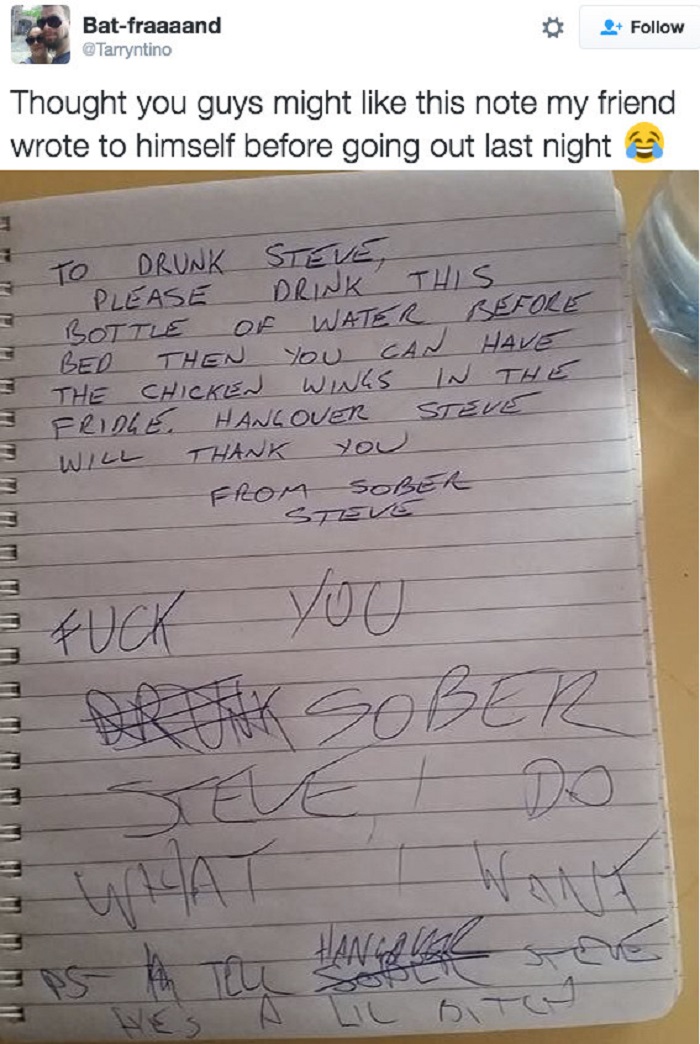 Bat-fraaaand
@Tarryntino
Follow
Thought you guys might like this note my friend
wrote to himself before going out last night 😂
TO DRUNK STEVE,
PLEASE DRINK THIS
BOTTLE OF WATER BEFORE
BED THEN YOU CAN HAVE
THE CHICKEN WINGS IN THE
FRIDGE. HANGOVER STEVE
WILL THANK YOU
FROM SOBER
STEVE
FUCK YOU
DRUNK SOBER
STEVE, I DO
WHAT I WANT
HANGOVER
PS- TELL SOBER STEVE
HES A LIL BITCH